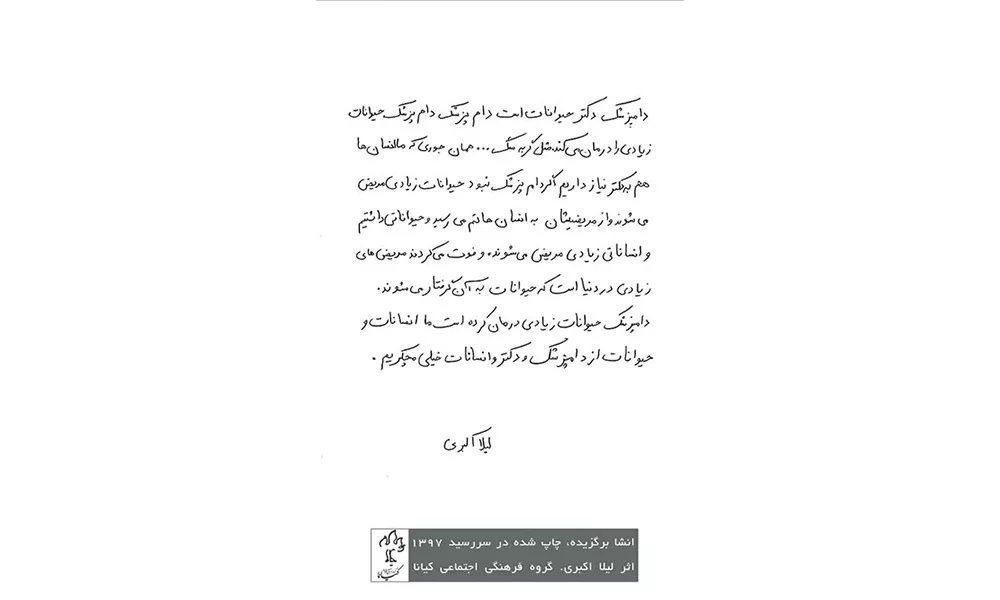 دامپزشک دکتر حیوانات است دام پزشک دام پزشک حیوانات
زیادی را درمان می‌کند. مثل گربه سگ ... همان جوری که ما انسان ها
هم به دکتر نیاز داریم اگر دام پزشک نبود حیوانات زیادی مریض
می شوند و از مریضیشان به انسان ها هم می رسید و حیواناتی داشتیم
و انساناتی زیادی مریض می شوند. و فوت می کردند مریضی های
زیادی در دنیا است که حیوانات به آن گرفتار می شوند.
دامپزشک حیوانات زیادی درمان کرده است ما انسانات و
حیوانات از دامپزشک و دکتر و انسانات خیلی مچکریم .
لیلا اکبری
انشا برگزیده، چاپ شده در سررسید ۱۳۹۷
اثر لیلا اکبری. گروه فرهنگی اجتماعی کیانا